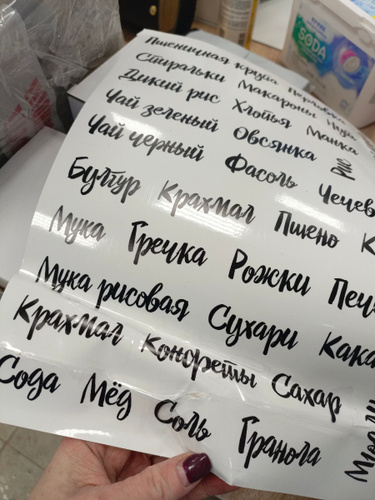 SODA
Пшеничная крупа Перловка
Стиральки Макароны Нут
Дикий рис Хлопья Манка
Чай зеленый Овсянка Рис
Чай черный Фасоль Чечев
Булгур Крахмал Пшено К
Мука Гречка Рожки Печ
Мука рисовая Сухари Кака
Крахмал Конфеты Сахар
Сода Мёд Соль Гранола
Мюсли